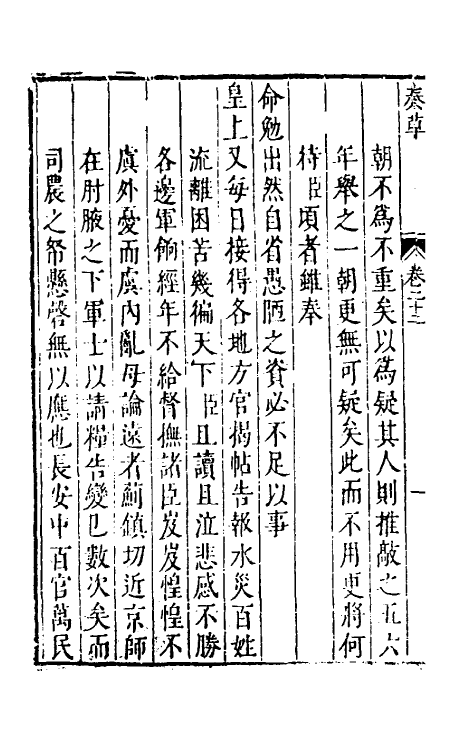 奏草
卷之十二
一
朝不爲不重矣以爲疑其人則推敲之五六
年舉之一朝更無可疑矣此而不用更將何
待臣頃者雖奉
命勉出然自省愚陋之資必不足以事
皇上又每日接得各地方官揭帖告報水災百姓
流離困苦幾徧天下臣且讀且泣悲感不勝
各邊軍餉經年不給督撫諸臣岌岌惶惶不
虞外憂而虞內亂毋論遠者薊鎮切近京師
在肘腋之下軍士以請糧告變已數次矣而
司農之帑懸罄無以應也長安中百官萬民